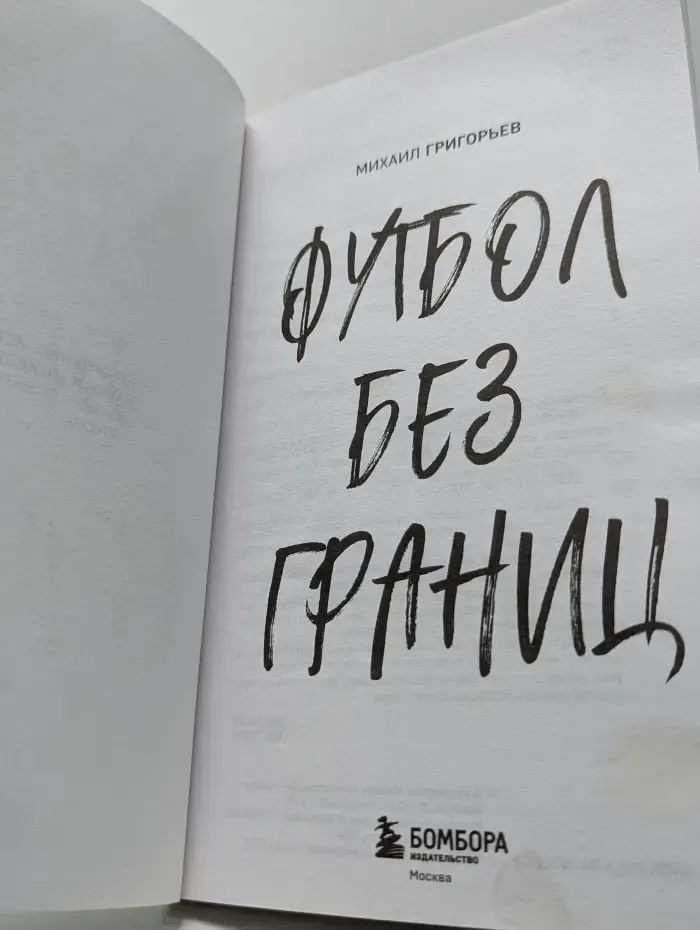 МИХАИЛ ГРИГОРЬЕВ
ФУТБОЛ
БЕЗ
ГРАНИЦ
БОМБОРА
ИЗДАТЕЛЬСТВО
Москва